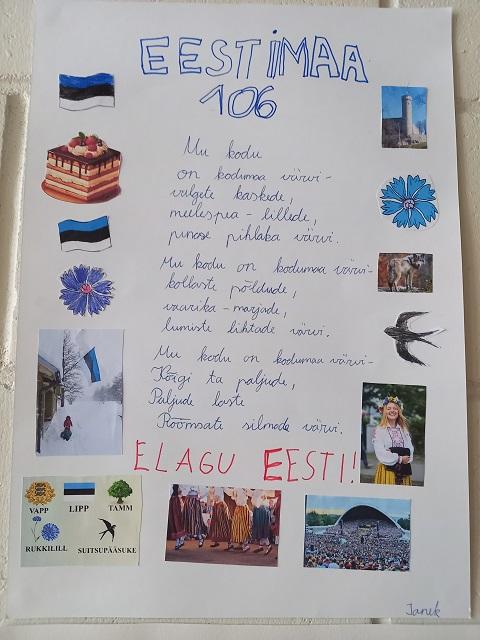 EESTIMAA
106
Mu kodu
on kodumaa värvi-
valgete kaskede,
meelespea - lillede,
punase pihlaka värvi.
Mu kodu on kodumaa värvi-
kollaste põldude,
vaarika - marjade,
lumiste lihtade värvi.
Mu kodu on kodumaa värvi-
Kõigi ta paljude,
Paljude laste
Rõõmsate silmade värvi.
ELAGU EESTI!
VAPP LIPP TAMM
RUKKILILL SUITSUPÄÄSUKE
Janek